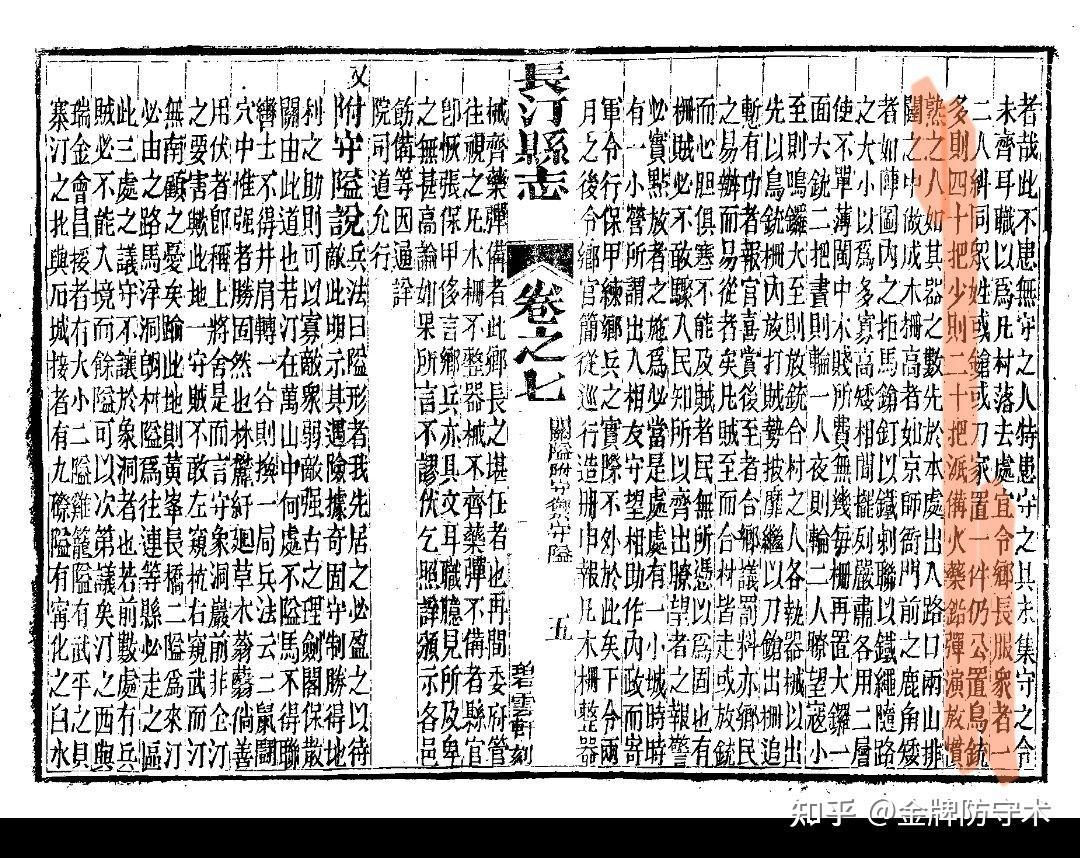 者哉此不患無守之人特患守之具未集守之令
未齊耳職以爲凡村落去處宜令鄉長服衆者一
二人糾同衆姓或鎗或刀家置一件仍公置鳥銃
多則四十把少則二十把派備火藥鉛彈演放慣
熟之人如其器之數先於本處出入路口兩山排
闥之中做成木柵高者如京師衙門前之鹿角矮
者如陣圖內之拒馬鎗釘以鐵刺聯以鐵繩隨路
之大小以爲多寡高矮相間擺列嚴肅各用二層
使不單薄閩中木賤所費無幾每柵再置大鑼一
面大銃二把晝則輪一人夜則輪二人瞭望寇小
至則鳴鑼大至則放銃合村之人各執器械以出
先以鳥銃柵內放打賊勢披靡繼以刀鎗出柵追
有功者報官喜賞後至者鄉議罰料亦鄉民
之易辦而易從者矣凡賊至而台村皆走或放銃
而心胆俱寒不能及賊者民無所憑以爲固也有
柵賊必不敢驟入民知所以齊出瞭望者之報警
必實點放者之施爲必當是處處有一小城時時
有一小營所謂出入相友守望相助作內政而寄
軍令行保甲練鄉兵之實際不外於此矣下令兩
月之後令鄉官簡從巡行造册申報凡木柵整器
長汀縣志
卷之七
關隘附守禦守隘
五
碧雲軒刻
械齊藥彈備者此鄉長之堪任者也再間委府管
往視之凡木柵不整器械不齊藥彈不備者縣官
卽恢張保甲侈言鄉兵亦具文耳職臆見所及卑
之無甚高論如果所言不謬伏乞照詳頒示各邑
飭備等因通詳
院司道允行
又附守隘說兵法曰隘形者我先居之必盈之以待
敵此明示其遇險據奇固守制勝得地
利之助則可以寡敵衆弱敵强古之理劍閣保散
關由此道也若汀在萬山中何處不隘馬不得聯
轡士不得井肩轉一谷則換一局兵法云二鼠鬪
穴中惟强者勝固然也林麓紆廻草木蓊翳倘善
用伏者卽稱上將舍是而言守象洞嚴前非企汀
之要害歟此地一守賊不敢左窺杭右窺武而汀
無南顧之憂矣踰此地則黃峯長橋二隘爲來汀
必由之路馬浮洞朗柯隘爲往連等縣必走之區
此三處之議守不讓於象洞者也若前數處有兵
賊必不能入境而餘隘可以次第議矣汀之西與
瑞金會昌接者有大小二隘雞籠隘有武平之貝
寨汀之北與石城接者有九磜隘有寗化之白水
知乎 @金牌防守术